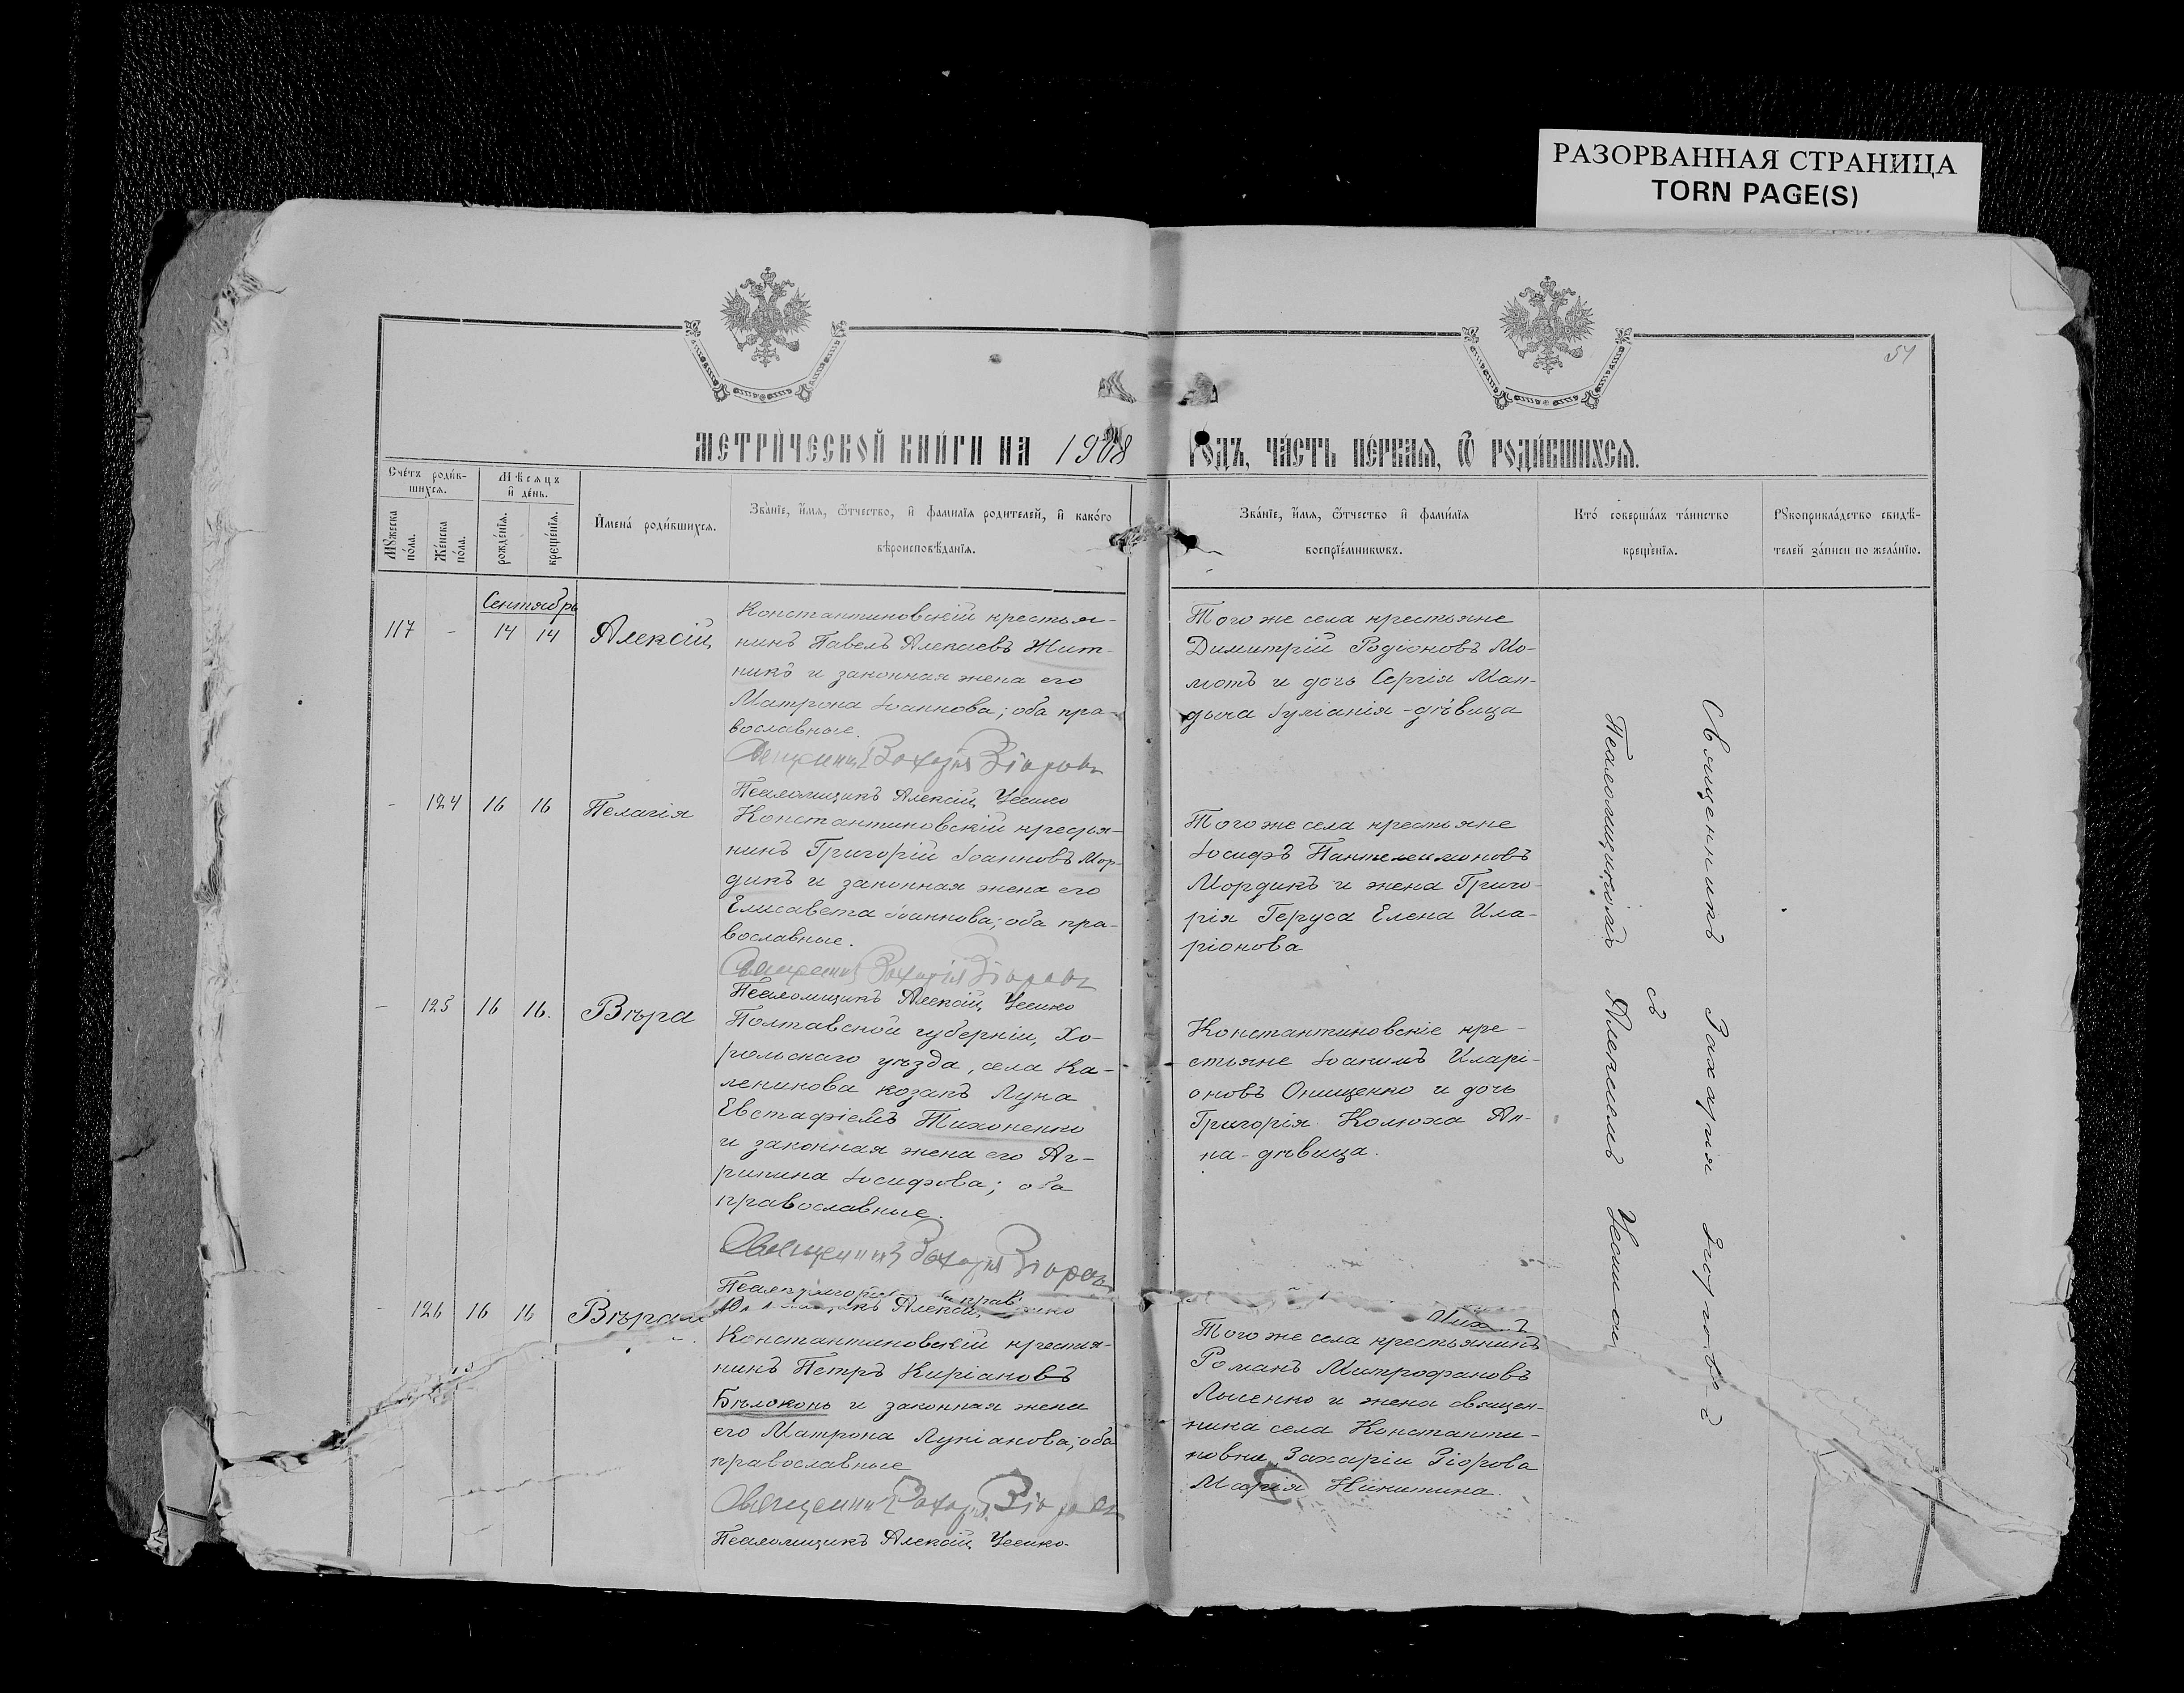 РАЗОРВАННАЯ СТРАНИЦА
TORN PAGE(S)
54
МЕТРИЧЕСКОЙ КНИГИ НА 1908 ГОДЪ, ЧАСТЬ ПЕРВАЯ, Ѿ РОДИВШИХСЯ.
Счетъ родив-
шихся.
Мѣсяцъ
и день.
Мужеска
пола.
Женска
пола.
рожденія.
крещенія.
Имена родившихся.
Званіе, имя, ѿтчество, и фамилія родителей, и какого
вѣроисповѣданія.
Званіе, имя, ѿтчество и фамилія
воспріемниковъ.
Кто совершалъ таинство
крещенія.
Рукоприкладство свидѣ-
телей записи по желанію.
Сентябрь
117 - 14 14 Алексій
Константиновскій крестья-
нинъ Павелъ Алексіевъ Жит-
никъ и законная жена его
Матрона Іоаннова; оба пра-
вославные.
Священникъ Захарія Зіоровъ
Псаломщикъ Алексій
Того же села крестьяне
Димитрій Родіоновъ Мо-
мотъ и дочь Сергія Ман-
дыча Іуліанія - дѣвица
- 124 16 16 Пелагія
Константиновскій крестья-
нинъ Григорій Іоанновъ Мор-
дикъ и законная жена его
Елисавета Іоаннова; оба пра-
вославные.
Священникъ Захарія Зіоровъ
Псаломщикъ Алексій
Того же села крестьяне
Іосифъ Пантелеимоновъ
Мордикъ и жена Григо-
рія Геруса Елена Ила-
ріонова
- 125 16 16. Вѣра
Полтавской губерніи, Хо-
рольскаго уѣзда, села Ка-
леникова козакъ Лука
Евстафіевъ Тихоненко
и законная жена его Аг-
рипина Іосифова; оба
православные.
Священникъ Захарія Зіоровъ
Алексій
Константиновскіе кре-
стьяне Іоакимъ Иларі-
оновъ Онищенко и дочь
Григорія Колюха Ан-
на - дѣвица.
- 126 16 16 Вѣра
Константиновскій крестья-
нинъ Петръ Киріаковъ
Бѣлоконь и законная жена
его Матрона Лукіанова; оба
православные
Священникъ Захарія Зіоровъ
Псаломщикъ Алексій
Того же села крестьянинъ
Романъ Митрофановъ
Лысенко и жена священ-
ника села Константи-
новки Захаріи Зіорова
Марія Никитина.
Священникъ Захарія Зіоровъ
съ
Псаломщикомъ Алексіемъ